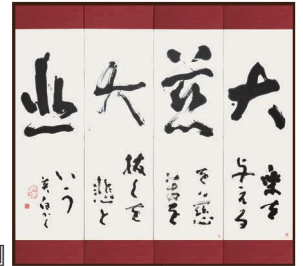 大慈大悲
楽を
与える
をハ慈
苦を
抜くを
悲と
いう